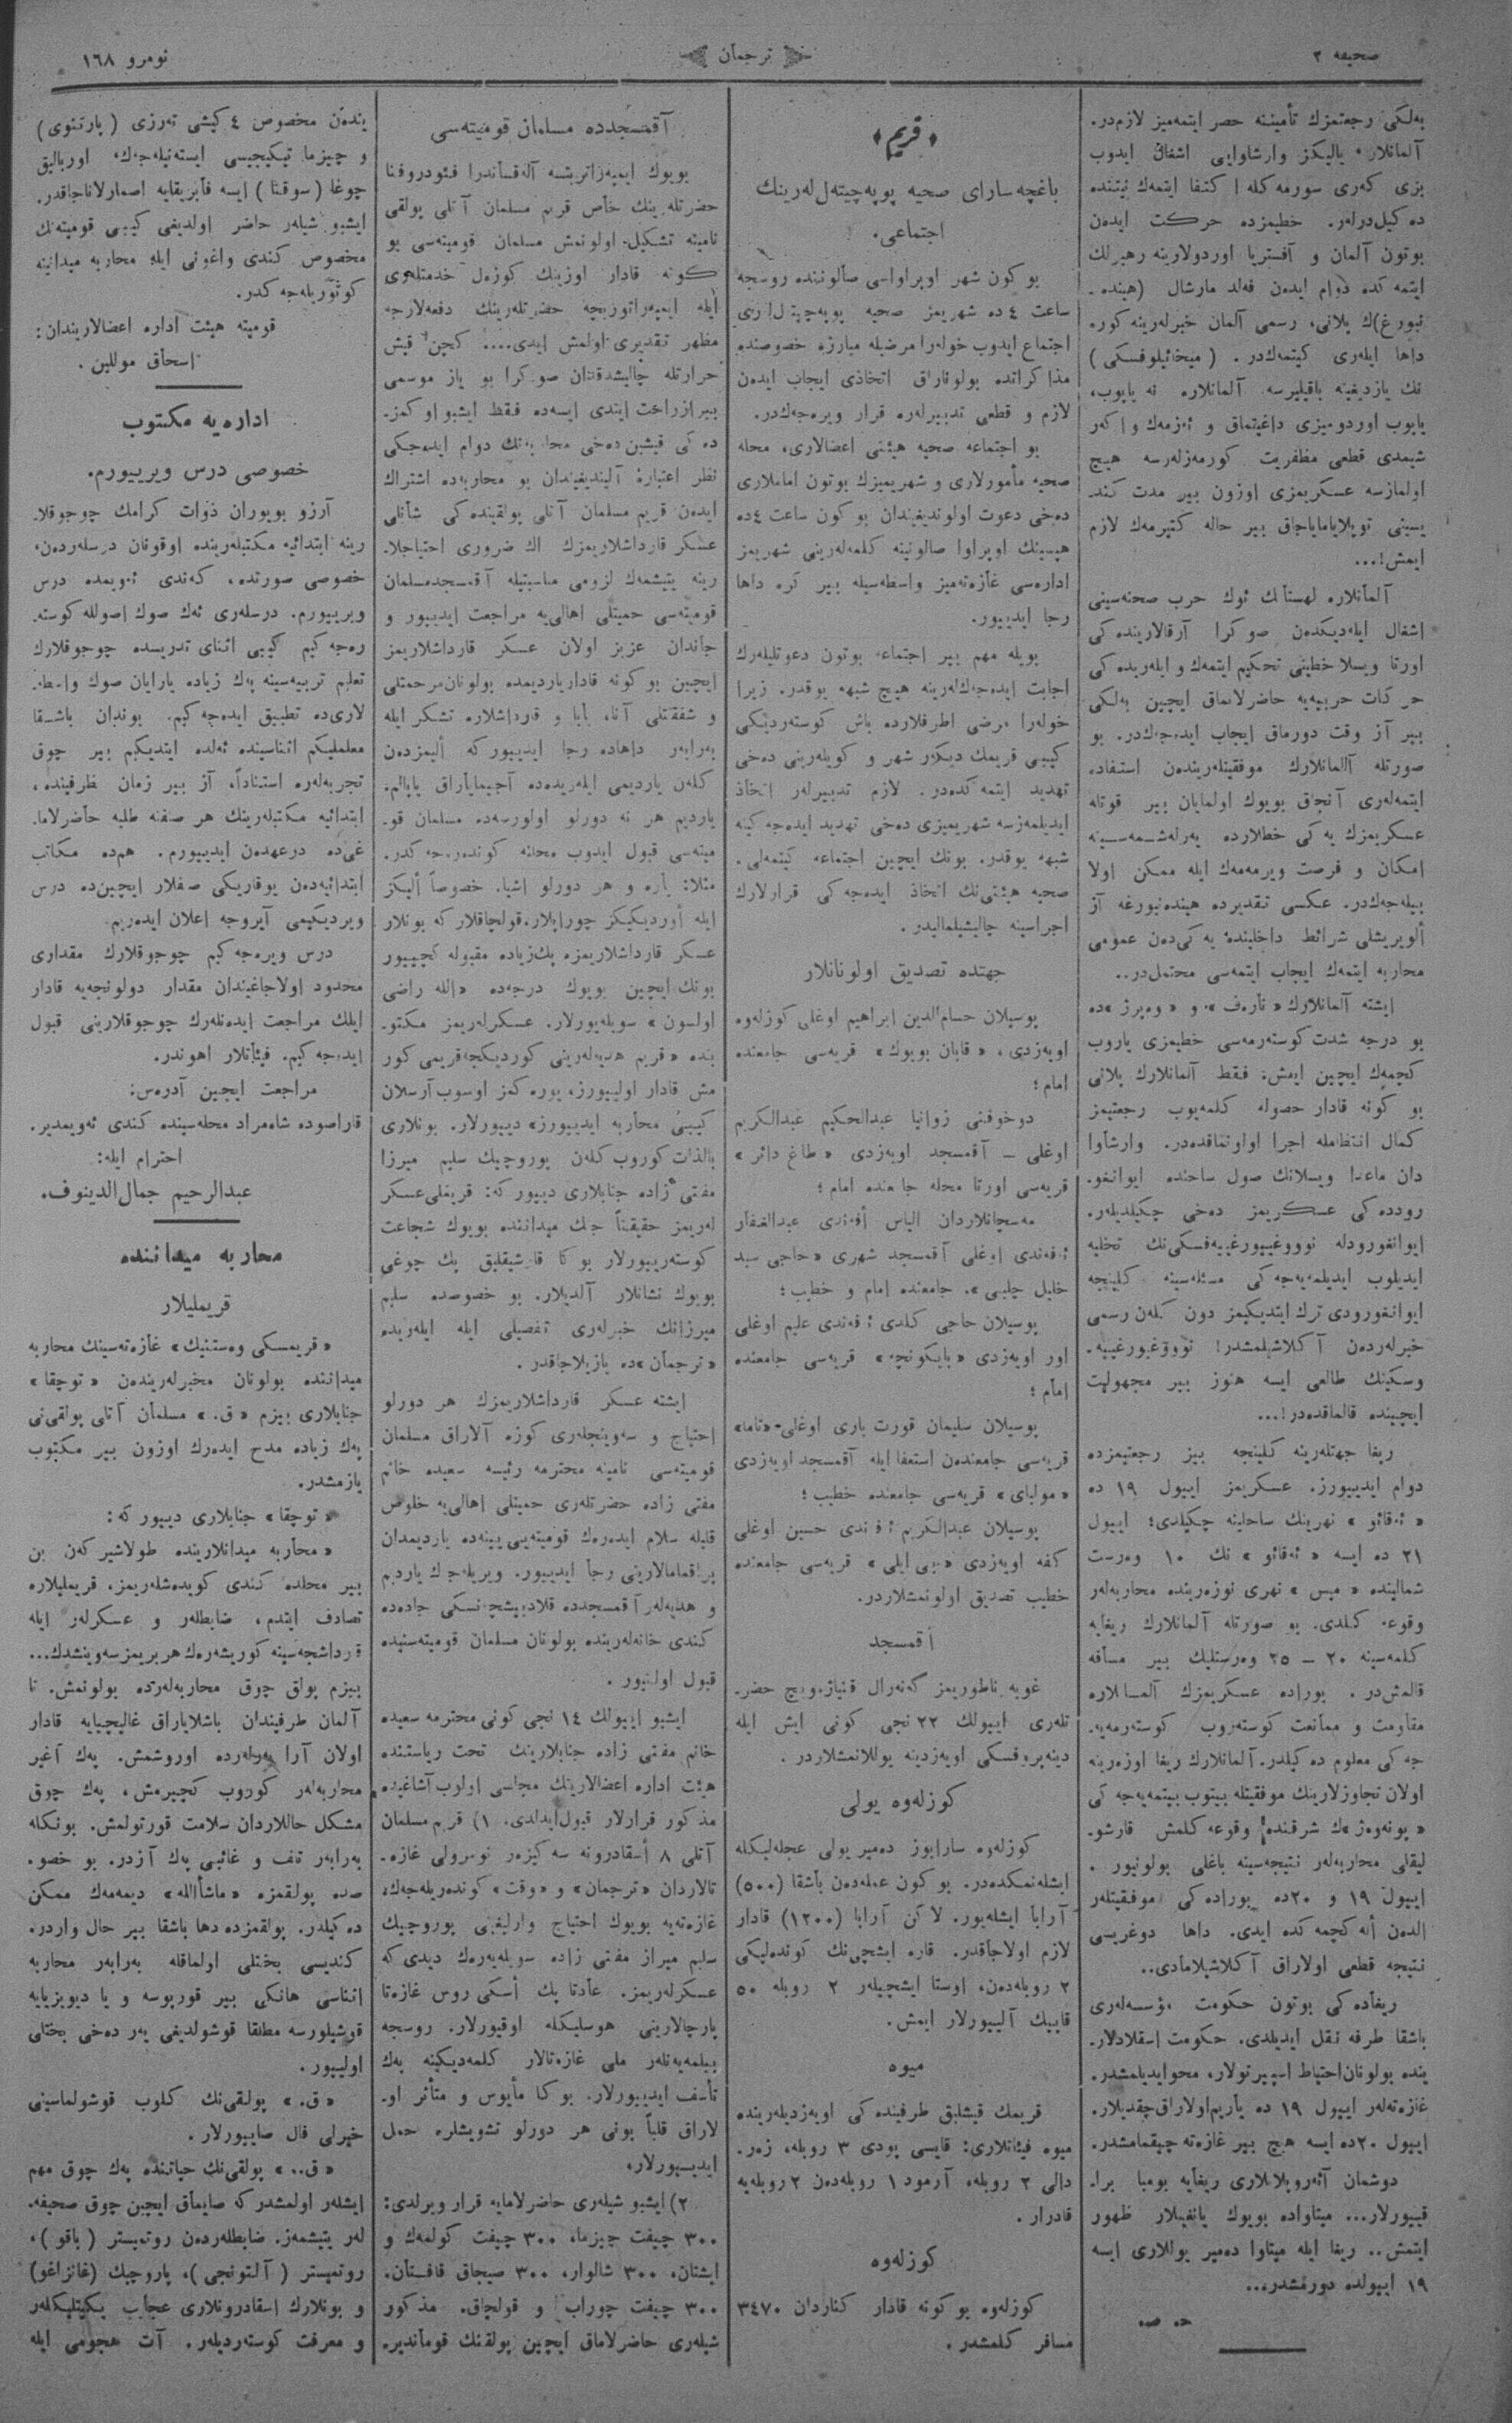 صحیفه ۲
ترجمان
نومرو ١٦٨
بەلکی رجعتمزك تأمیننه حصر ایتمەمیز لازم‌در.
آلمانلار، یالیکز وارشاوایی اشغال ایدوب
بزی کەری سورمەکله اکتفا ایتمەك نیتنده
دەکیل‌درلەر. خطیمزده حرکت ایدەن
بوتون آلمان و آفستریا اوردولارینه رهبرلك
ایتمەکده دوام ایدەن فەلد مارشال (هینده-
نبورغ)ك پلانی، رسمی آلمان خبرلەرینه کوره
داها ایلەری کیتمەك‌در. (میخائیلوفسکی)
نك یازدیغینه باقیلیرسه آلمانلاره نه یاپوب،
یاپوب اوردومیزی داغیتماق و ئەزمەك و اکەر
شیمدی قطعی مظفریت کورمەزلەرسه هیچ
اولمازسه عسکریمزی اوزون بیر مدت کند-
یسینی توپلایامایاجاق بیر حاله کتیرمەك لازم
ایمش!...
آلمانلاره لهستانك ئوك حرب صحنه‌سینی
اشغال ایلەدیکدەن صوکرا آرقالارینده‌کی
اورتا ویسلا خطینی تحکیم ایتمەك و ایلەریده‌کی
حرکات حربیه‌یه حاضرلانماق ایچین بەلکی
بیر آز وقت دورماق ایجاب ایدەجەك‌در. بو
صورتله آلمانلارك موفقیتلەریندەن استفاده
ایتمەلەری آنجاق بویوك اولمایان بیر قوتله
عسکریمزك یەکی خطلارده یەرلەشمەسینه
امکان و فرصت ویرمەمەك ایله ممکن اولا
بیلەجەك‌در. عکسی تقدیرده هیندەنبورغه آز
ألویریشلی شرائط داخلینده یەکی‌دەن عمومی
محاربه ایتمەك ایجاب ایتمەسی محتمل‌در..
ایشته آلمانلارك «نارەف» و «وەپرز»ده
بو درجه شدت کوستەرمەسی خطیمزی یاروب
کچمەك ایچین ایمش. فقط آلمانلارك پلانی
بو کونه قادار حصوله کلمەیوب رجعتیمز
کمال انتظامله اجرا اولونماقدەدر. وارشاوا
دان ماعدا ویسلانك صول ساحنده ایوانغو-
رودده‌کی عسکریمز دەخی چکیلدیلەر.
ایوانغورودله نووغیورغییەفسکی‌نك تخلیه
ایدیلوب ایدیلمەیەجەکی مسئله‌سینه کلینجه
ایوانغورودی ترك ایتدیکیمز دون کلەن رسمی
خبرلەردەن آکلاشیلمشدر! نووغیورغییە-
وسکینك طالعی ایسه هنوز بیر مجهولیت
ایچینده قالماقدەدر!...
ریغا جهتلەرینه کلینجه بیز رجعتیمزده
دوام ایدییورز. عسکریمز اییول ١٩ ده
«ئەقائو» نهرینك ساحلینه چکیلدی؛ اییول
٢١ ده ایسه «ئەقائو» نك ١٠ وەرست
شمالینده «میس» نهری ئوزەرینده محاربەلەر
وقوعه کلدی. بو صورتله آلمانلارك ریغایه
کلمەسینه ٢٠ – ٢٥ وەرستلیك بیر مسافه
قالمش‌در. بوراده عسکریمزك آلمانلاره
مقاومت و ممانعت کوستەروب کوستەرمەیە-
جەکی معلوم دەکیلدر. آلمانلارك ریغا اوزەرینه
اولان تجاوزلارینك موفقیتله بیتوب بیتمەیەجەکی
«پونەوەژ»ك شرقنده وقوعه کلمش قارشو-
لیقلی محاربەلەر نتیجەسینه باغلی بولونیور.
اییول ١٩ و ٢٠ده بوراده‌کی موفقیتلەر
الدەن ألە کچمەکده ایدی. داها دوغریسی
نتیجه قطعی اولاراق آکلاشیلامادی..
ریغاده‌کی بوتون حکومت مؤسسەلەری
باشقا طرفه نقل ایدیلدی. حکومت اسقلادلار-
ینده بولونان احتیاط اسپیرتولار، محو ایدیلمشدر.
غازەتەلەر اییول ١٩ ده یأریم‌اولاراق‌چقدیلار.
اییول ٢٠ده ایسه هیچ بیر غازەته چیقمامشدر.
دوشمان آئەروپلانلاری ریغایه بومبا برا-
قییورلار... میتاواده بویوك یانغینلار ظهور
ایتمش.. ریغا ایله میتاوا دەمیر یوللاری ایسه
١٩ اییولده دورمشدر...
ح. ص.
«قریم»
باغچه سارای صحیه پوپەچیتەل لەرینك
اجتماعی.
بو کون شهر اوپراواسی صالوننده روسجه
ساعت ٤ ده شهریمز صحیه پوپەچیتەل‌لەری
اجتماع ایدوب خولەرا مرضیله مبارزه خصوصنده
مذاکراتده بولوناراق اتخاذی ایجاب ایدەن
لازم و قطعی تدبیرلەره قرار ویرەجەك‌در.
بو اجتماعه صحیه هیئتی اعضالاری، محله
صحیه مأمورلاری و شهریمیزك بوتون اماملاری
دەخی دعوت اولوندیغیندان بو کون ساعت ٤ده
هپسینك اوپراوا صالونینه کلمەلەرینی شهریمز
ادارەسی غازەتەمیز واسطه‌سیله بیر کره داها
رجا ایدییور.
بویله مهم بیر اجتماعه بوتون دعوتلیلەرك
اجابت ایدەجەك‌لەرینه هیچ شبهه یوقدر. زیرا
خولەرا مرضی اطرفلارده باش کوستەردیکی
کیبی قریمك دیکر شهر و کویلەرینی دەخی
تهدید ایتمەکدەدر. لازم تدبیرلەر اتخاذ
ایدیلمەزسه شهریمیزی دەخی تهدید ایدەجەکینه
شبهه یوقدر. بونك ایچین اجتماعه کیتمەلی،
صحیه هیئتی‌نك اتخاذ ایدەجەکی قرارلارك
اجراسینه چالیشیلمالیدر.
جهتده تصدیق اولونانلار
پوسیلان حسام‌الدین ابراهیم اوغلی کوزلەوه
اویەزدی، «قاپان بویوك» قریه‌سی جامعنده
امام؛
دوخوفنی زوانیا عبدالحکیم عبدالکریم
اوغلی – آقمسجد اویەزدی «طاغ دائر»
قریه‌سی اورتا محله جامعنده امام؛
مەسچانلاردان الیاس أفندی عبدالغفار
ئەفەندی اوغلی آقمسجد شهری «حاجی سید
خلیل چلبی». جامعنده امام و خطیب؛
پوسیلان حاجی کلدی ئەفەندی علیم اوغلی
اور اویەزدی «بایکونچەك» قریه‌سی جامعنده
امام؛
پوسیلان سلیمان قورت باری اوغلی-«تاما»
قریه‌سی جامعندەن استعفا ایله آقمسجد اویەزدی
«مولبای» قریه‌سی جامعنده خطیب؛
پوسیلان عبدالکریم أفندی حسین اوغلی
کفه اویەزدی «بی ایلی» قریه‌سی جامعنده
خطیب تصدیق اولونمشلاردر.
آقمسجد
غوبەرناطوریمز گەنەرال قنیاژەویچ حضر-
تلەری اییولك ٢٢ نجی کونی ایش ایله
دینەپروفسکی اویەزدینه یوللانمشلاردر.
کوزلەوه یولی
کوزلەوه سارابوز دەمیر یولی عجله‌لیکله
ایشلەنمکدەدر. بو کون عمله‌دەن باشقا (٥٠٠)
آرابا ایشلەیور. لاکن آرابا (١٢٠٠) قادار
لازم اولاجاقدر. قاره ایشچی‌نك کوندەلیکی
٢ روبلەدەن، اوستا ایشچیلەر ٢ روبله ٥٠
قاپیك آلییورلار ایمش.
میوه
قریمك قیشلیق طرفینده‌کی اویەزدیلەرینده
میوه فیئاتلاری: قایسی پودی ٣ روبله، زەر-
دالی ٢ روبله، آرمود ١ روبلەدەن ٢ روبلەیه
قادرار.
کوزلەوه
کوزلەوه بو کونه قادار کناردان ٣٤٧٠
مسافر کلمشدر.
آقمسجدده مسلمان قومیتەسی
بویوك ایمپەراتریتسه آلەقساندرا فئودروفنا
حضرتلەرینك خاص قریم مسلمان آتلی پولقی
نامینه تشکیل اولونمش مسلمان قومیتەسی بو
کونه قادار اوزینك کوزەل خدمتلەری
ایله ایمپەراتوریچه حضرتلەرینك دفعەلارجه
مظهر تقدیری اولمش ایدی.... کچن قیش
حرارتله چالیشدقدان صوکرا بو یاز موسمی
بیراز راحت ایتدی ایسەده فقط ایشبو اوکمز-
ده‌کی قیشین دەخی محاربه‌نك دوام ایدەجکی
نظر اعتباره آلیندیغیندان بو محاربەده اشتراك
ایدەن قریم مسلمان آتلی پولقینده‌کی شأنلی
عسکر قارداشلاریمزك اك ضروری احتیاجلا-
رینه یتیشمەك لزومی مناسبتیله آقمسجد مسلمان
قومیتەسی حمیتلی اهالی‌یه مراجعت ایدییور و
جاندان عزیز اولان عسکر قارداشلاریمز
ایچین بو کونه قادار یاردیمده بولونان مرحمتلی
و شفقتلی آنا، بابا و قارداشلاره تشکر ایله
بەرابەر داهاده رجا ایدییورکه أليمزدەن
کلەن یاردیمی ایلەریدەده آجیمایاراق یاپالم.
یاردیم هر نه دورلو اولورسەده مسلمان قو-
میتەسی قبول ایدوب محلنه کوندەرەجەكدر.
مثلا: پاره و هر دورلو اشیا. خصوصاً أليكز
ایله أوردیکیکز چوراپلار، قولچاقلار که بونلار
عسکر قارداشلاریمزه پك زیاده مقبوله کچییور
بونك ایچین بویوك درجەده «الله راضی
اولسون» سویلەیورلار. عسکرلەریمز مکتو-
بنده «قریم هدیه‌لەرینی کوردیکجه قریمی کور
مش قادار اولییورز، یورەکمز اوسوب آرسلان
کیبی محاربه ایدییورز» دییورلار. بونلاری
بالذات کوروب کلەن پوروچیك سلیم میرزا
مفتی زاده جنابلاری دییور که: قریملی عسکر
لەریمز حقیقتاً جنك میداننده بویوك شجاعت
کوستەرییورلار بوکا قارشیلیق پك چوغی
بویوك نشانلار آلدیلار. بو خصوصده سلیم
میرزانك خبرلەری تفصیلی ایله ایلەریده
«ترجمان»ده یازیلاجاقدر.
ایشته عسکر قارداشلاریمزك هر دورلو
احتیاج و سەوینجلەری کوزه آلاراق مسلمان
قومیتەسی نامینه محترمه رئیسه سعیده خانم
مفتی زاده حضرتلەری حمیتلی اهالی‌یه خلوص
قلبله سلام ایدەرەك قومیتەیی ینەده یاردیمدان
براقمامالارینی رجا ایدییور. ویریلەجك یاردیم
و هدیه‌لەر آقمسجدده قلادبیشچەنسکی جادەده
کندی خانەلەرینده بولونان مسلمان قومیتەسنده
قبول اولنیور.
ایشبو اییولك ١٤ نجی کونی محترمه سعیده
خانم مفتی زاده جنابلارینك تحت ریاستنده
هیئت اداره اعضالارینك مجلسی اولوب آشاغیده
مذکور قرارلار قبول ایدلدی. ١) قریم مسلمان
آتلی ٨ أسقادرونه سەکیزەر نومرولی غازە-
تالاردان «ترجمان» و «وقت» کوندەریلەجەك،
غازەتەیه بویوك احتیاج وارلیغنی پوروچیك
سلیم میرزا مفتی زاده سویلەیەرەك دیدی که
عسکرلەریمز. عادتا پك أسکی روس غازەتا
پارچالارینی هوسلیکله اوقیورلار. روسجه
بیلمەیەنلەر ملی غازەتالار کلمەدیکینه پەك
تأسف ایدییورلار. بوکا مأیوس و متأثر او-
لاراق قلباً بونی هر دورلو تشویشلره حمل
ایدییورلار،
٢) ایشبو شیلەری حاضرلامایه قرار ویرلدی:
٣٠٠ چیفت چیزما، ٣٠٠ چیفت کولمەك و
ایشتان، ٣٠٠ شالوار، ٣٠٠ صیجاق قافتان،
٣٠٠ چیفت چوراب و قولچاق. مذکور
شیلەری حاضرلاماق ایچین پولقنك قوماندیر-
یندەن مخصوص ٤ کیشی تەرزی (پارتنوی)
و چیزما تیکیجیسی ایستەنیلەجەك، اوربالیق
چوغا (سوقنا) ایسه فابریقایه اصمارلاناجاقدر.
ایشبو شیلەر حاضر اولدیغی کیبی قومیتەنك
مخصوص کندی واغونی ایله محاربه میدانینه
کوتوریلەجەكدر.
قومیته هیئت اداره اعضالاریندان:
إسحاق موللین.
ادارەیه مکتوب
خصوصی درس ویرییورم.
آرزو بویوران ذوات کرامك چوجوقلا-
رینه ابتدائیه مکتبلەرینده اوقونان درسلەردەن،
خصوصی صورتده، کەندی ئەویمده درس
ویرییورم. درسلەری ئەك صوك اصولله کوسته-
رەجەکیم گیبی اثنای تدریسده چوجوقلارك
تعلیم تربیه‌سینه پەك زیاده یارایان صوك واسطه-
لاری‌ده تطبیق ایدەجەکیم. بوندان باشقا
معلملیکم اثناسینده ئەلده ایتدیکیم بیر چوق
تجربەلەره استناداً، آز بیر زمان ظرفینده،
ابتدائیه مکتبلەرینك هر صنفنه طلبه حاضرلاما-
غی‌ده درعهدەن ایدییورم. هم‌ده مکاتب
ابتدائیه‌دەن یوقاریکی صنفلار ایچین‌ده درس
ویردیکیمی آیروجه إعلان ایدەریم.
درس ویرەجەکیم چوجوقلارك مقداری
محدود اولاجاغیندان مقدار دولونجەیه قادار
ایلك مراجعت ایدەنلەرك چوجوقلارینی قبول
ایدەجەکیم. فیئاتلار اهوندر.
مراجعت ایچین آدرەس:
قاراصوده شاه‌مراد محله‌سینده کندی ئەویمدیر.
احترام ایله:
عبدالرحیم جمال‌الدینوف.
محاربه میداننده
قریملیلار
«قریمسکی وەستنیك» غازەتەسینك محاربه
میداننده بولونان مخبرلەریندەن «توچقا»
جنابلاری بیزم «ق.» مسلمان آتلی پولقی‌نی
پەك زیاده مدح ایدەرك اوزون بیر مکتوب
یازمشدر.
«توچقا» جنابلاری دییور که:
«محاربه میدانلارینده طولاشیر کەن بن
بیر محلده کندی کویدەشلەریمز، قریملیلاره
تصادف ایتدم، ضابطلەر و عسکرلەر ایله
قرداشجه‌سینه کوریشەرەك هر بریمز سەوینشدك...
بیزم پولق چوق محاربەلەرده بولونمش. تا
آلمان طرفیندان باشلایاراق غالیچییایه قادار
اولان آرا یەرلەرده اوروشمش. پەك آغیر
محاربەلەر کوروب کچیرمش، پەك چوق
مشکل حاللاردان سلامت قورتولمش. بونکله
بەرابەر تلف و غائبی پەك آزدر. بو خصو-
صده پولقمزه «ماشأالله» دیمەمەك ممکن
دەکیلدر. پولقمزده دها باشقا بیر حال واردر.
کندیسی بختلی اولماقله بەرابەر محاربه
اثناسی هانکی بیر قورپوسه و یا دیویزیایه
قوشیلورسه مطلقا قوشولدیغی یەر دەخی بختلی
اولییور.
«ق.» پولقی‌نك کلوب قوشولماسینی
خیرلی فال صایییورلار.
«ق..» پولقی‌نك حیاتنده پەك چوق مهم
ایشلەر اولمشدر که صایماق ایچین چوق صحیفه-
لەر یتیشمەز. ضابطلەردەن روتمیستر (باقو)،
روتمیستر (آلتونجی)، پاروچیك (غانزاغو)
و بونلارك اسقادرونلاری عجایب یکیتلیکلەر
و معرفت کوستەردیلەر. آت هجومی ایله